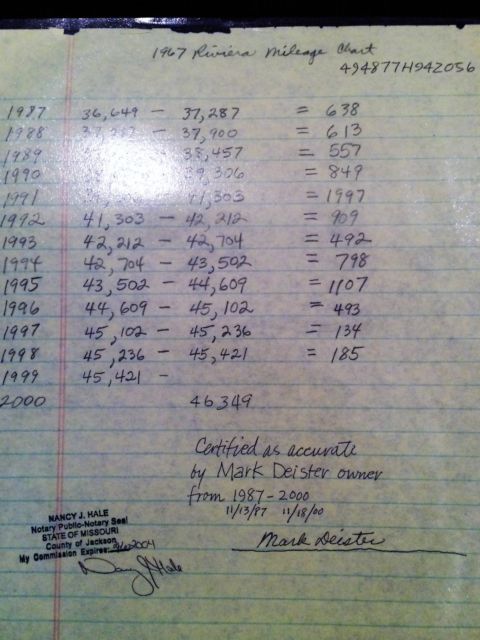 1967 Riviera Mileage Chart
494877H942056
1987 36,649 - 37,287 = 638
1988 37,287 - 37,900 = 613
1989 38,457 = 557
1990 39,306 = 849
1991 41,303 = 1997
1992 41,303 - 42,212 = 909
1993 42,212 - 42,704 = 492
1994 42,704 - 43,502 = 798
1995 43,502 - 44,609 = 1107
1996 44,609 - 45,102 = 493
1997 45,102 - 45,236 = 134
1998 45,236 - 45,421 = 185
1999 45,421 -
2000 46349
Certified as accurate
by Mark Deister owner
from 1987-2000
11/13/87 11/18/00
Mark Deister
NANCY J. HALE
Notary Public-Notary Seal
STATE OF MISSOURI
County of Jackson
My Commission Expires:
Nancy J Hale